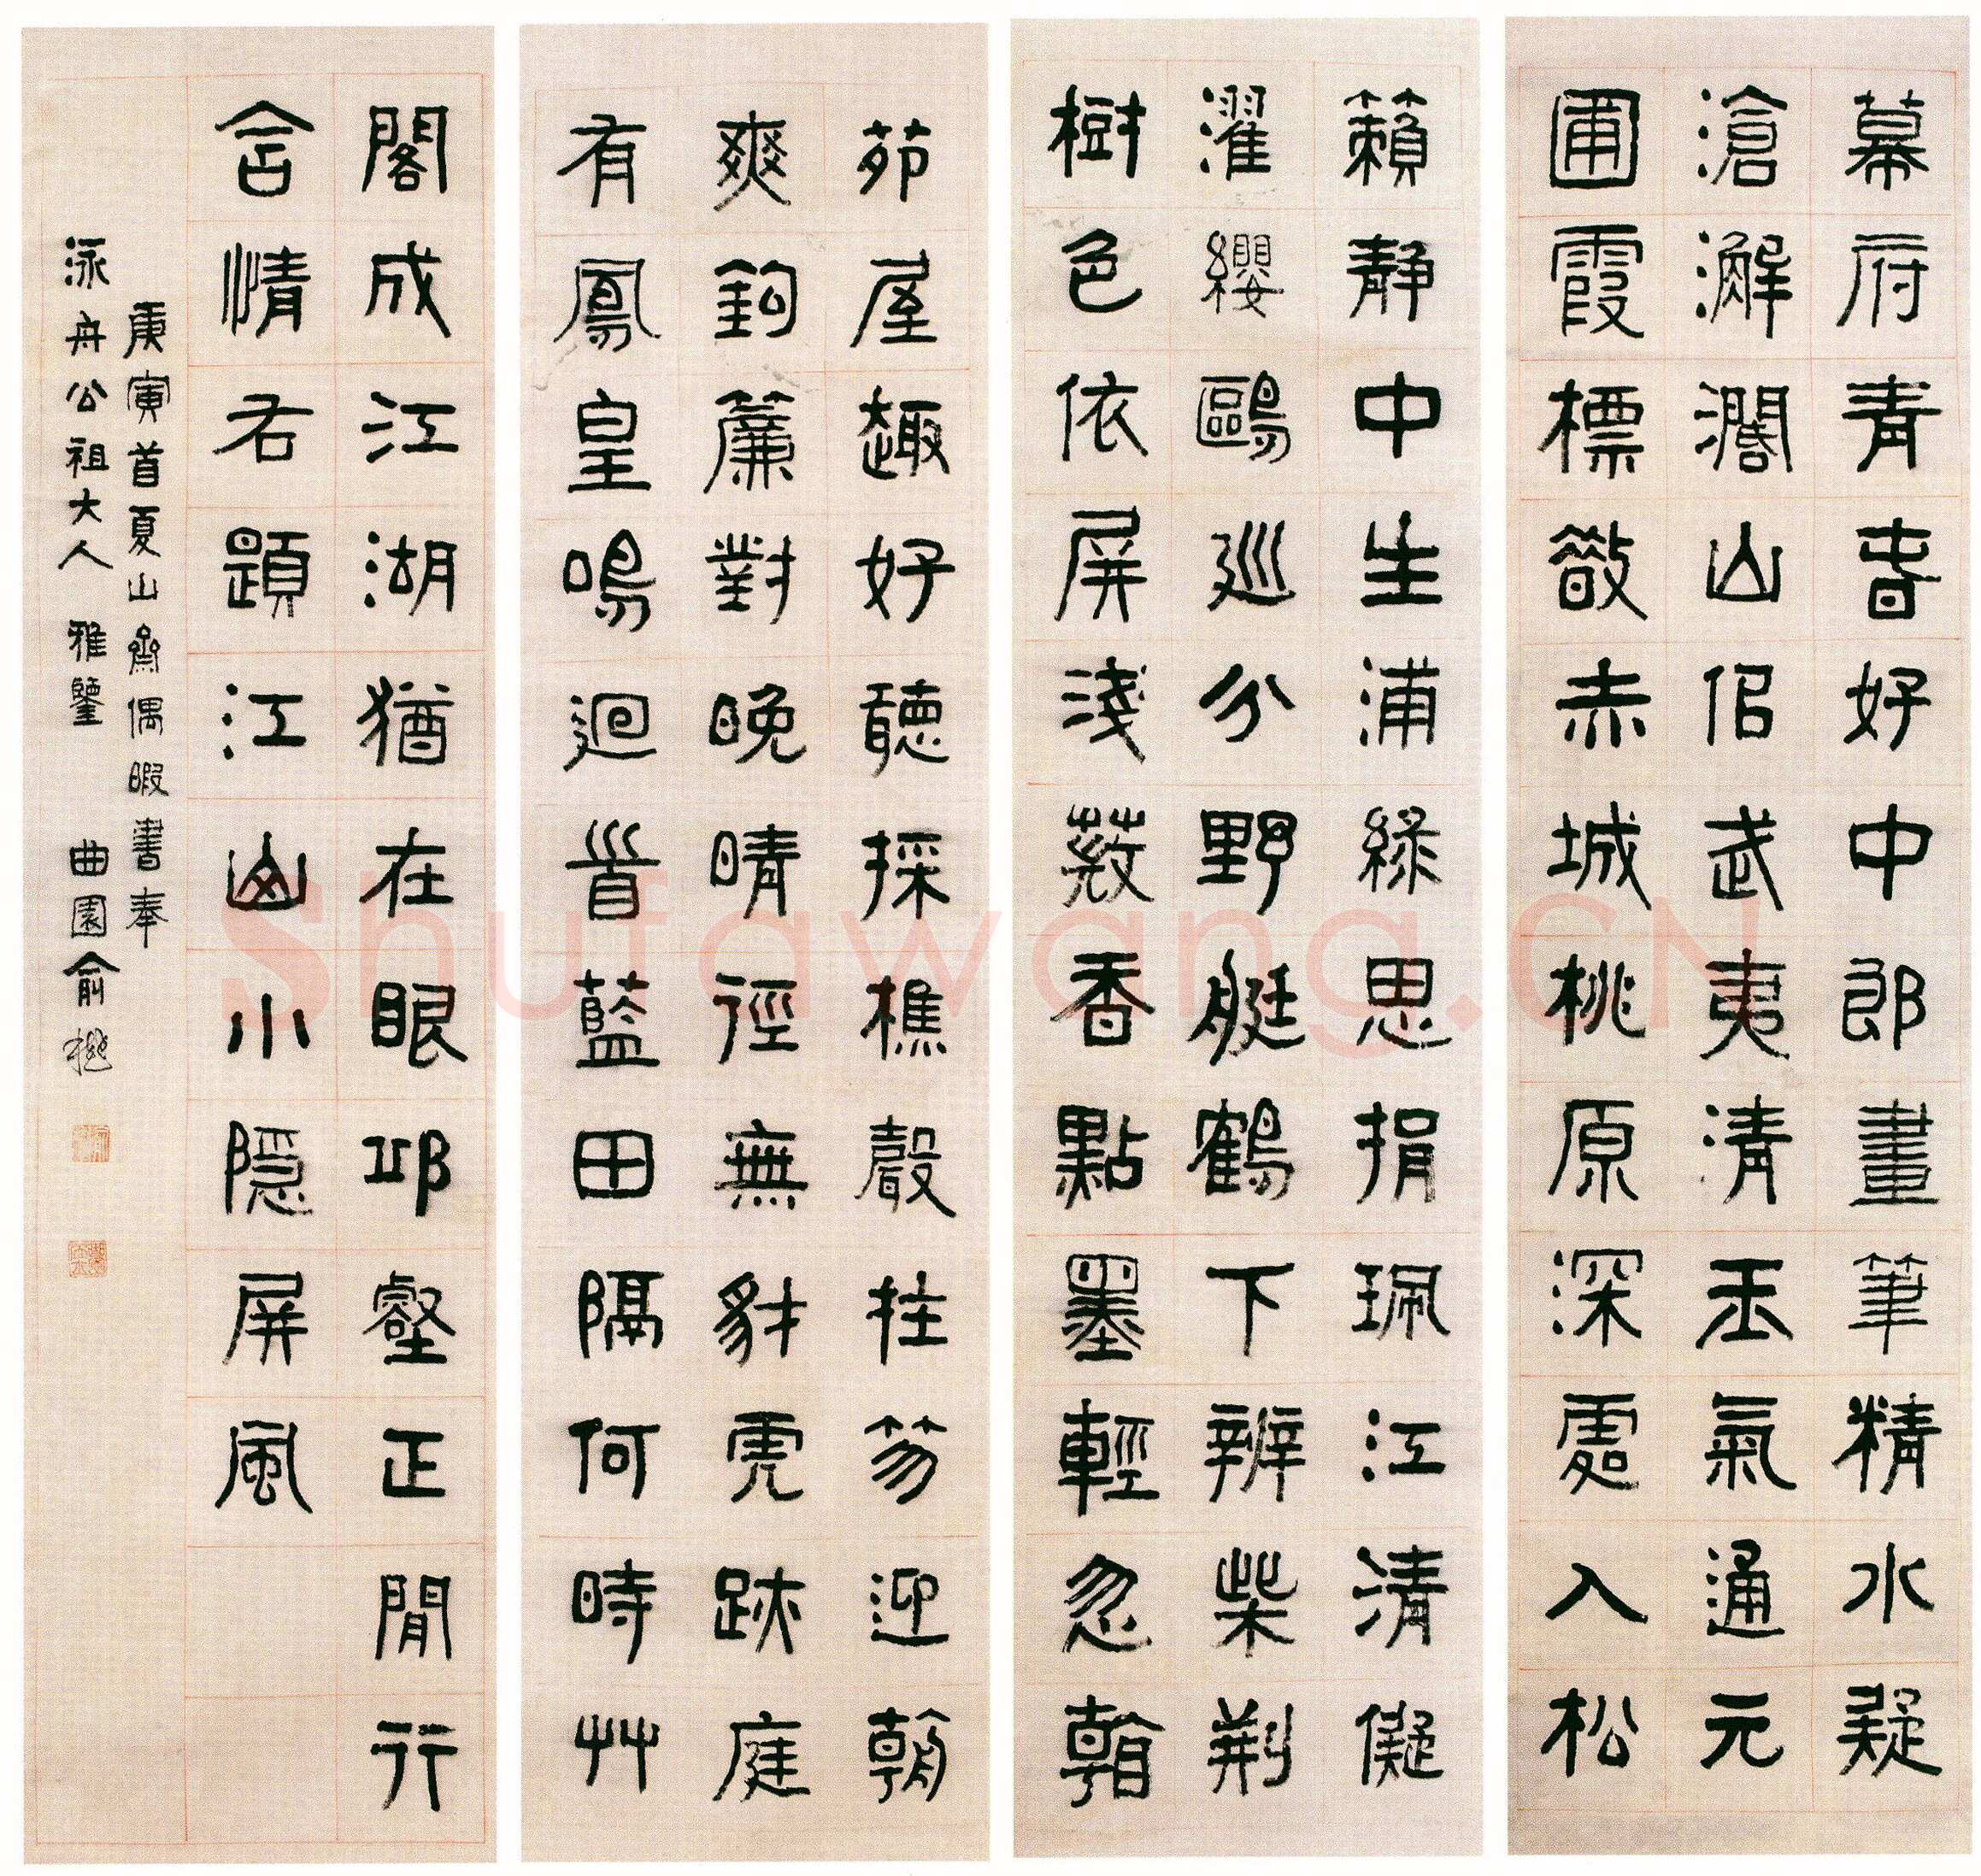 幕府青春好中郎畫筆精水疑
滄澥濶山侶武夷清玉氣通元
圃霞標敞赤城桃原深處入松
籟静中生浦綠思捐珮江清儗
濯纓鷗巡分野艇鶴下辨柴荆
樹色依屏淺香點墨輕忽
茆屋趣好聽採樵聲拄笏迎朝
爽鉤簾對晚晴徑無豺虎跡庭
有鳳皇鳴迴首藍田隔何時艸
閣成江湖猶在眼邱壑正閒行
含情右題江山小隱屏風
庚寅首夏山齋偶暇書奉
泳舟公祖大人 雅鑒 曲園俞樾
Shufawang.CN